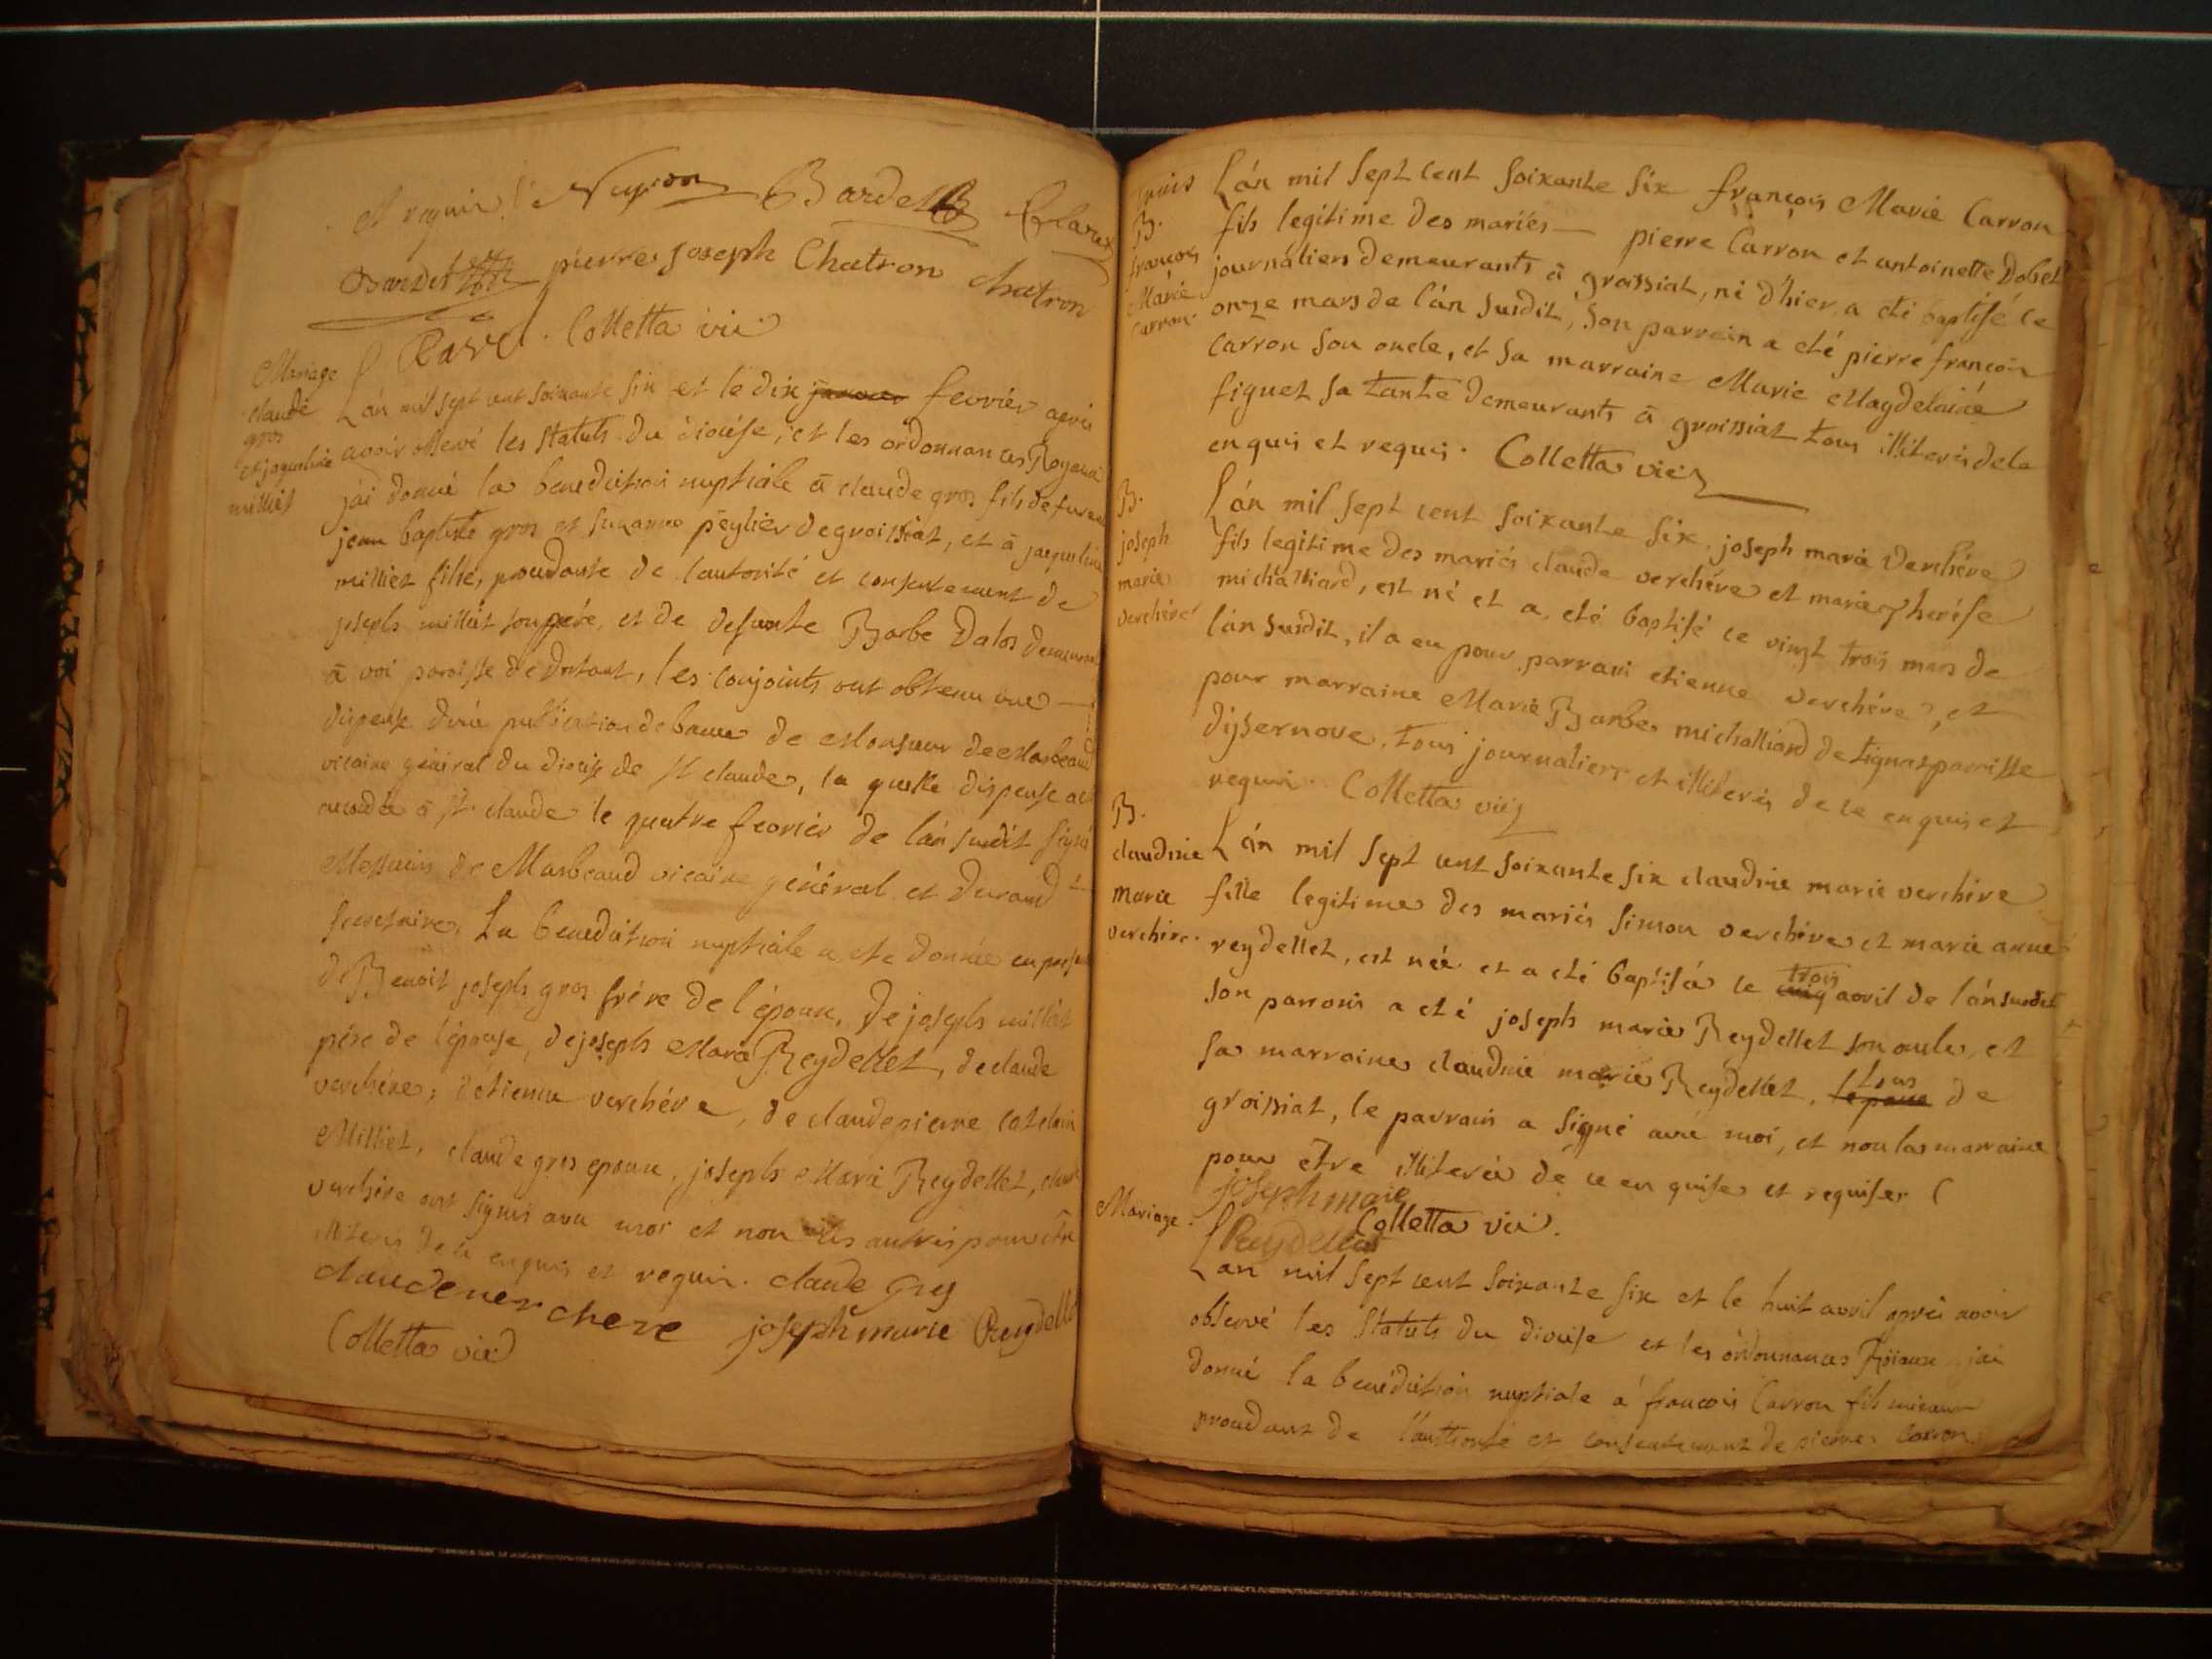 et requis. Bardet
Bardet pierre joseph Chatron chatron
Ravet. Colletta vic
Mariage
claude
gros
et jaqueline
milliet
L'an mil sept cent soixante six et le dix janvier fevrier aprés
avoir observé les statuts du diocése, et les ordonnances Royaux
j'ai donné la benediction nuptiale à claude gros fils de
jean baptiste gros et suzanne peylier de groissiat, et à jacqueline
milliet fille, procedante de l'autorité et consentement de
joseph milliet son pére, et de defunte Barbe Dalos
à voi paroisse de Dortant, les conjoints ont obtenu une
dispense d'une publication de bancs de Monsieur de Masbeaud
vicaire géneral du diocése de st claude, la quelle dispense
accordée à st claude le quatre fevrier de l'an susdit signé
Messieurs de Masbeaud vicaire géneral et Durand
secretaire. La benediction nuptiale a eté donnée en
de Benoit joseph gros frére de l'époux, de joseph milliet
pére de l'épouse, de joseph Marie Reydellet, de claude
verchére, d'etienne verchére, de claude pierre
Milliet, claude gros epoux, joseph Marie Reydellet, claude
verchére ont signés avec moi et non les autres pour être
illiteris de ce enquis et requis. claude gros
claude verchere joseph marie Reydellet
Colletta vic
B.
françois
Marie
Carron.
L'an mil sept cent soixante six françois Marie Carron
fils legitime des mariés pierre Carron et antoinette Dobet
journaliers demeurants à groissiat, né d'hier, a eté baptisé le
onze mars de l'an susdit, son parrein a eté pierre françois
Carron son oncle, et sa marraine Marie Magdelaine
figuet sa tante demeurants à groissiat tous illiteris de ce
enquis et requis. Colletta vic
B.
joseph
marie
verchére
L'an mil sept cent soixante six joseph marie Verchére
fils legitime des mariés claude verchére et marie therése
michalliard, est né et a eté baptisé le vingt trois mars de
l'an susdit, il a eu pour parrain etienne verchére, et
pour marraine Marie Barbe michalliard de tignat paroisse
d'isernove, tous journaliers et illiteris de ce enquis et
requis. Colletta vic
B.
claudine
marie
verchére.
L'an mil sept cent soixante six claudine marie verchére
fille legitime des mariés simon verchére et marie anne
reydellet, est née et a eté baptisée le trois avril de l'an susdit
son parrain a eté joseph marie Reydellet son oncle, et
sa marraine claudine marie Reydellet, tous de
groissiat, le parrain a signé avec moi, et non la marraine
pour etre illiterée de ce enquise et requise.
joseph marie
Reydellet
Colletta vic.
Mariage.
L'an mil sept cent soixante six et le huit avril aprés avoir
observé les statuts du diocése et les ordonnances Roïaux j'ai
donné la benediction nuptiale à françois Carron fils mineur
procedant de l'authorité et consentement de pierre Carron